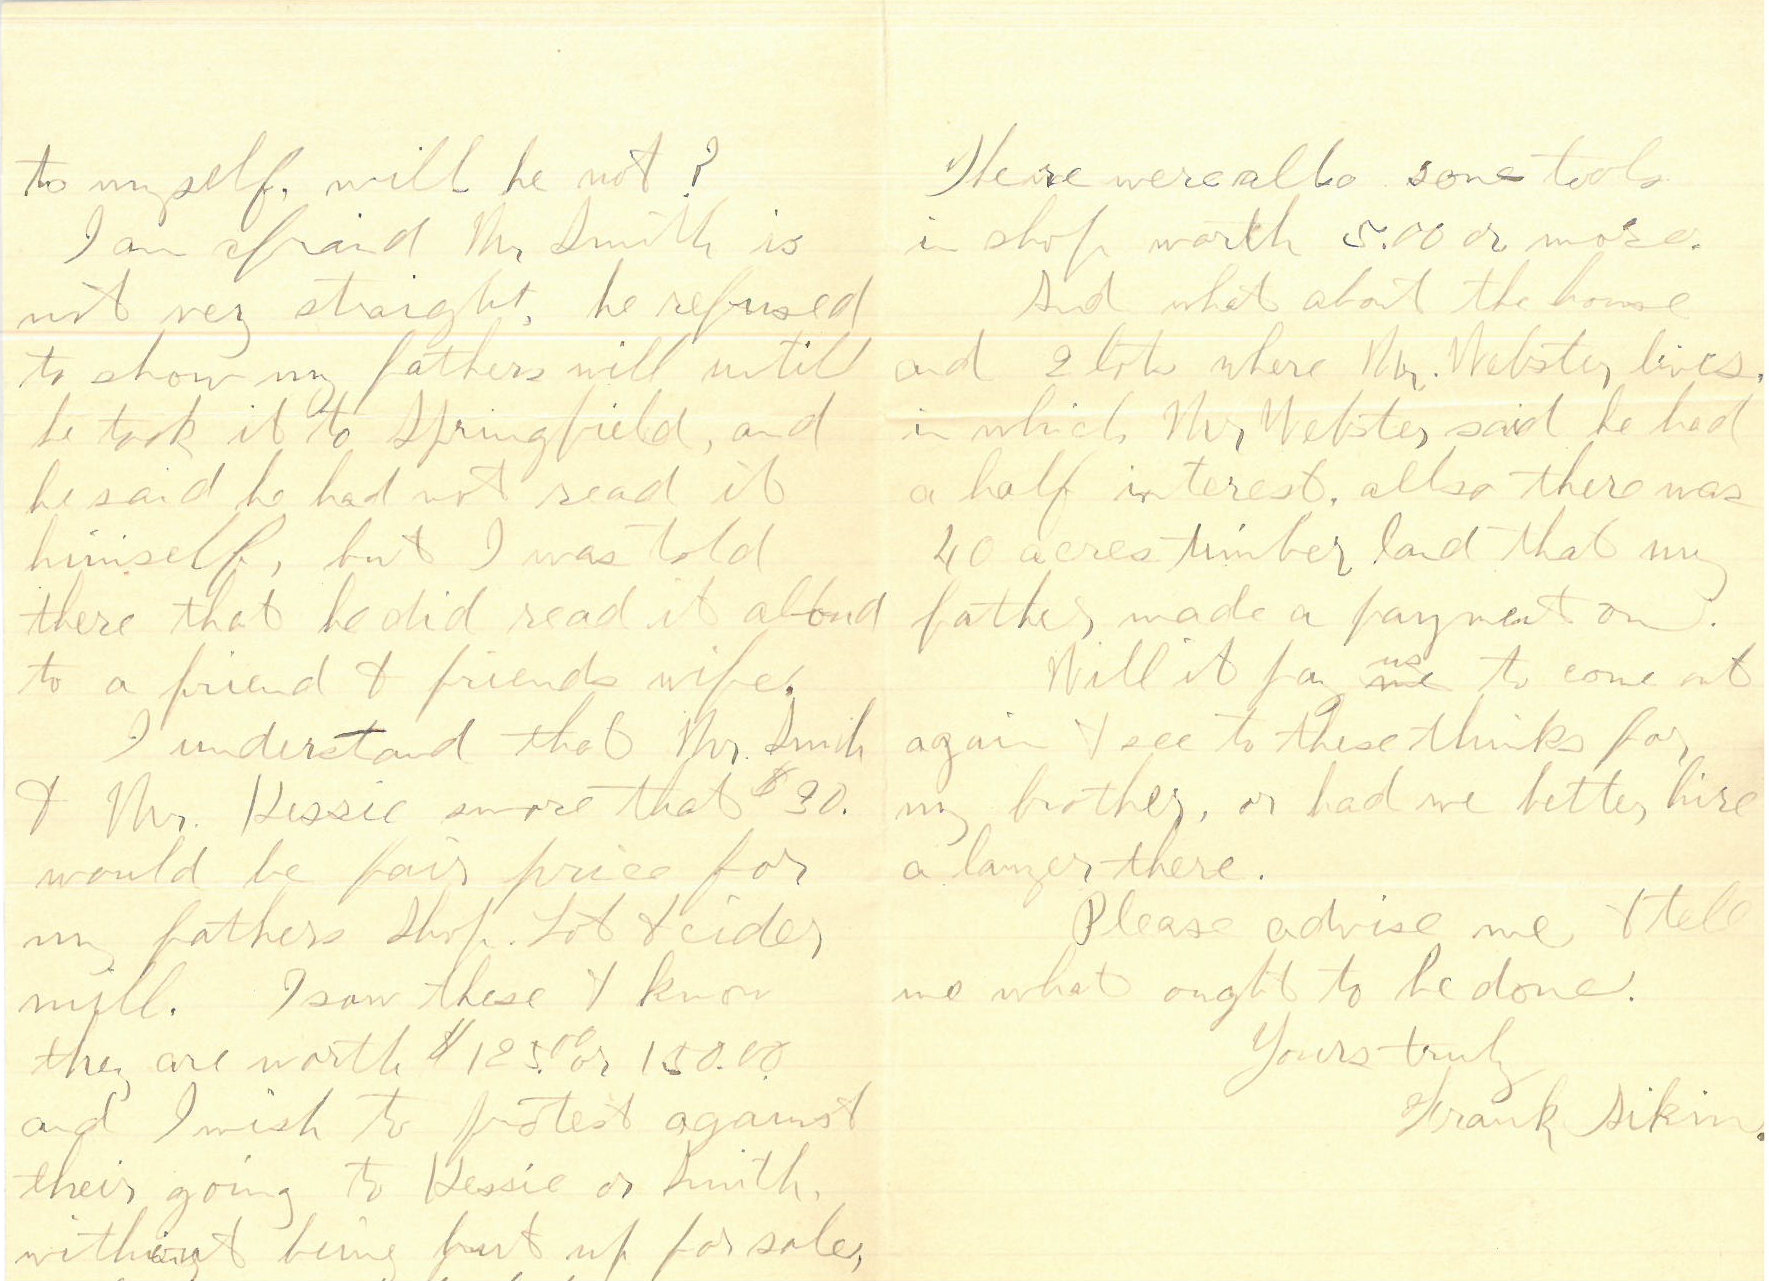 to myself, will he not?
I am afraid Mr Smith is
not very straight, he refused
to show my fathers will until
he took it to Springfield, and
he said he had not read it
himself, but I was told
there that he did read it aloud
to a friend & friends wife.
I understand that Mr. Smith
& Mr. Hessie swore that $30.
would be fair price for
my fathers Shop. Lot & cider
mill. I saw these & know
they are worth $125.00 or 150.00
and I wish to protest against
their going to Hessie or Smith.
without being put up for sale,
There were allso some tools
in shop worth 5.00 or more.
And what about the house
and 2 lots where Mr. Webster lives.
in which Mr, Webster said he had
a half interest. allso there was
40 acres timber land that my
father made a payment on.
Will it pay me us to come out
again & see to these thinks for
my brother, or had we better hire
a lawyer there.
Please advise me & tell
me what ought to be done.
Yours truly
Frank Sikin.